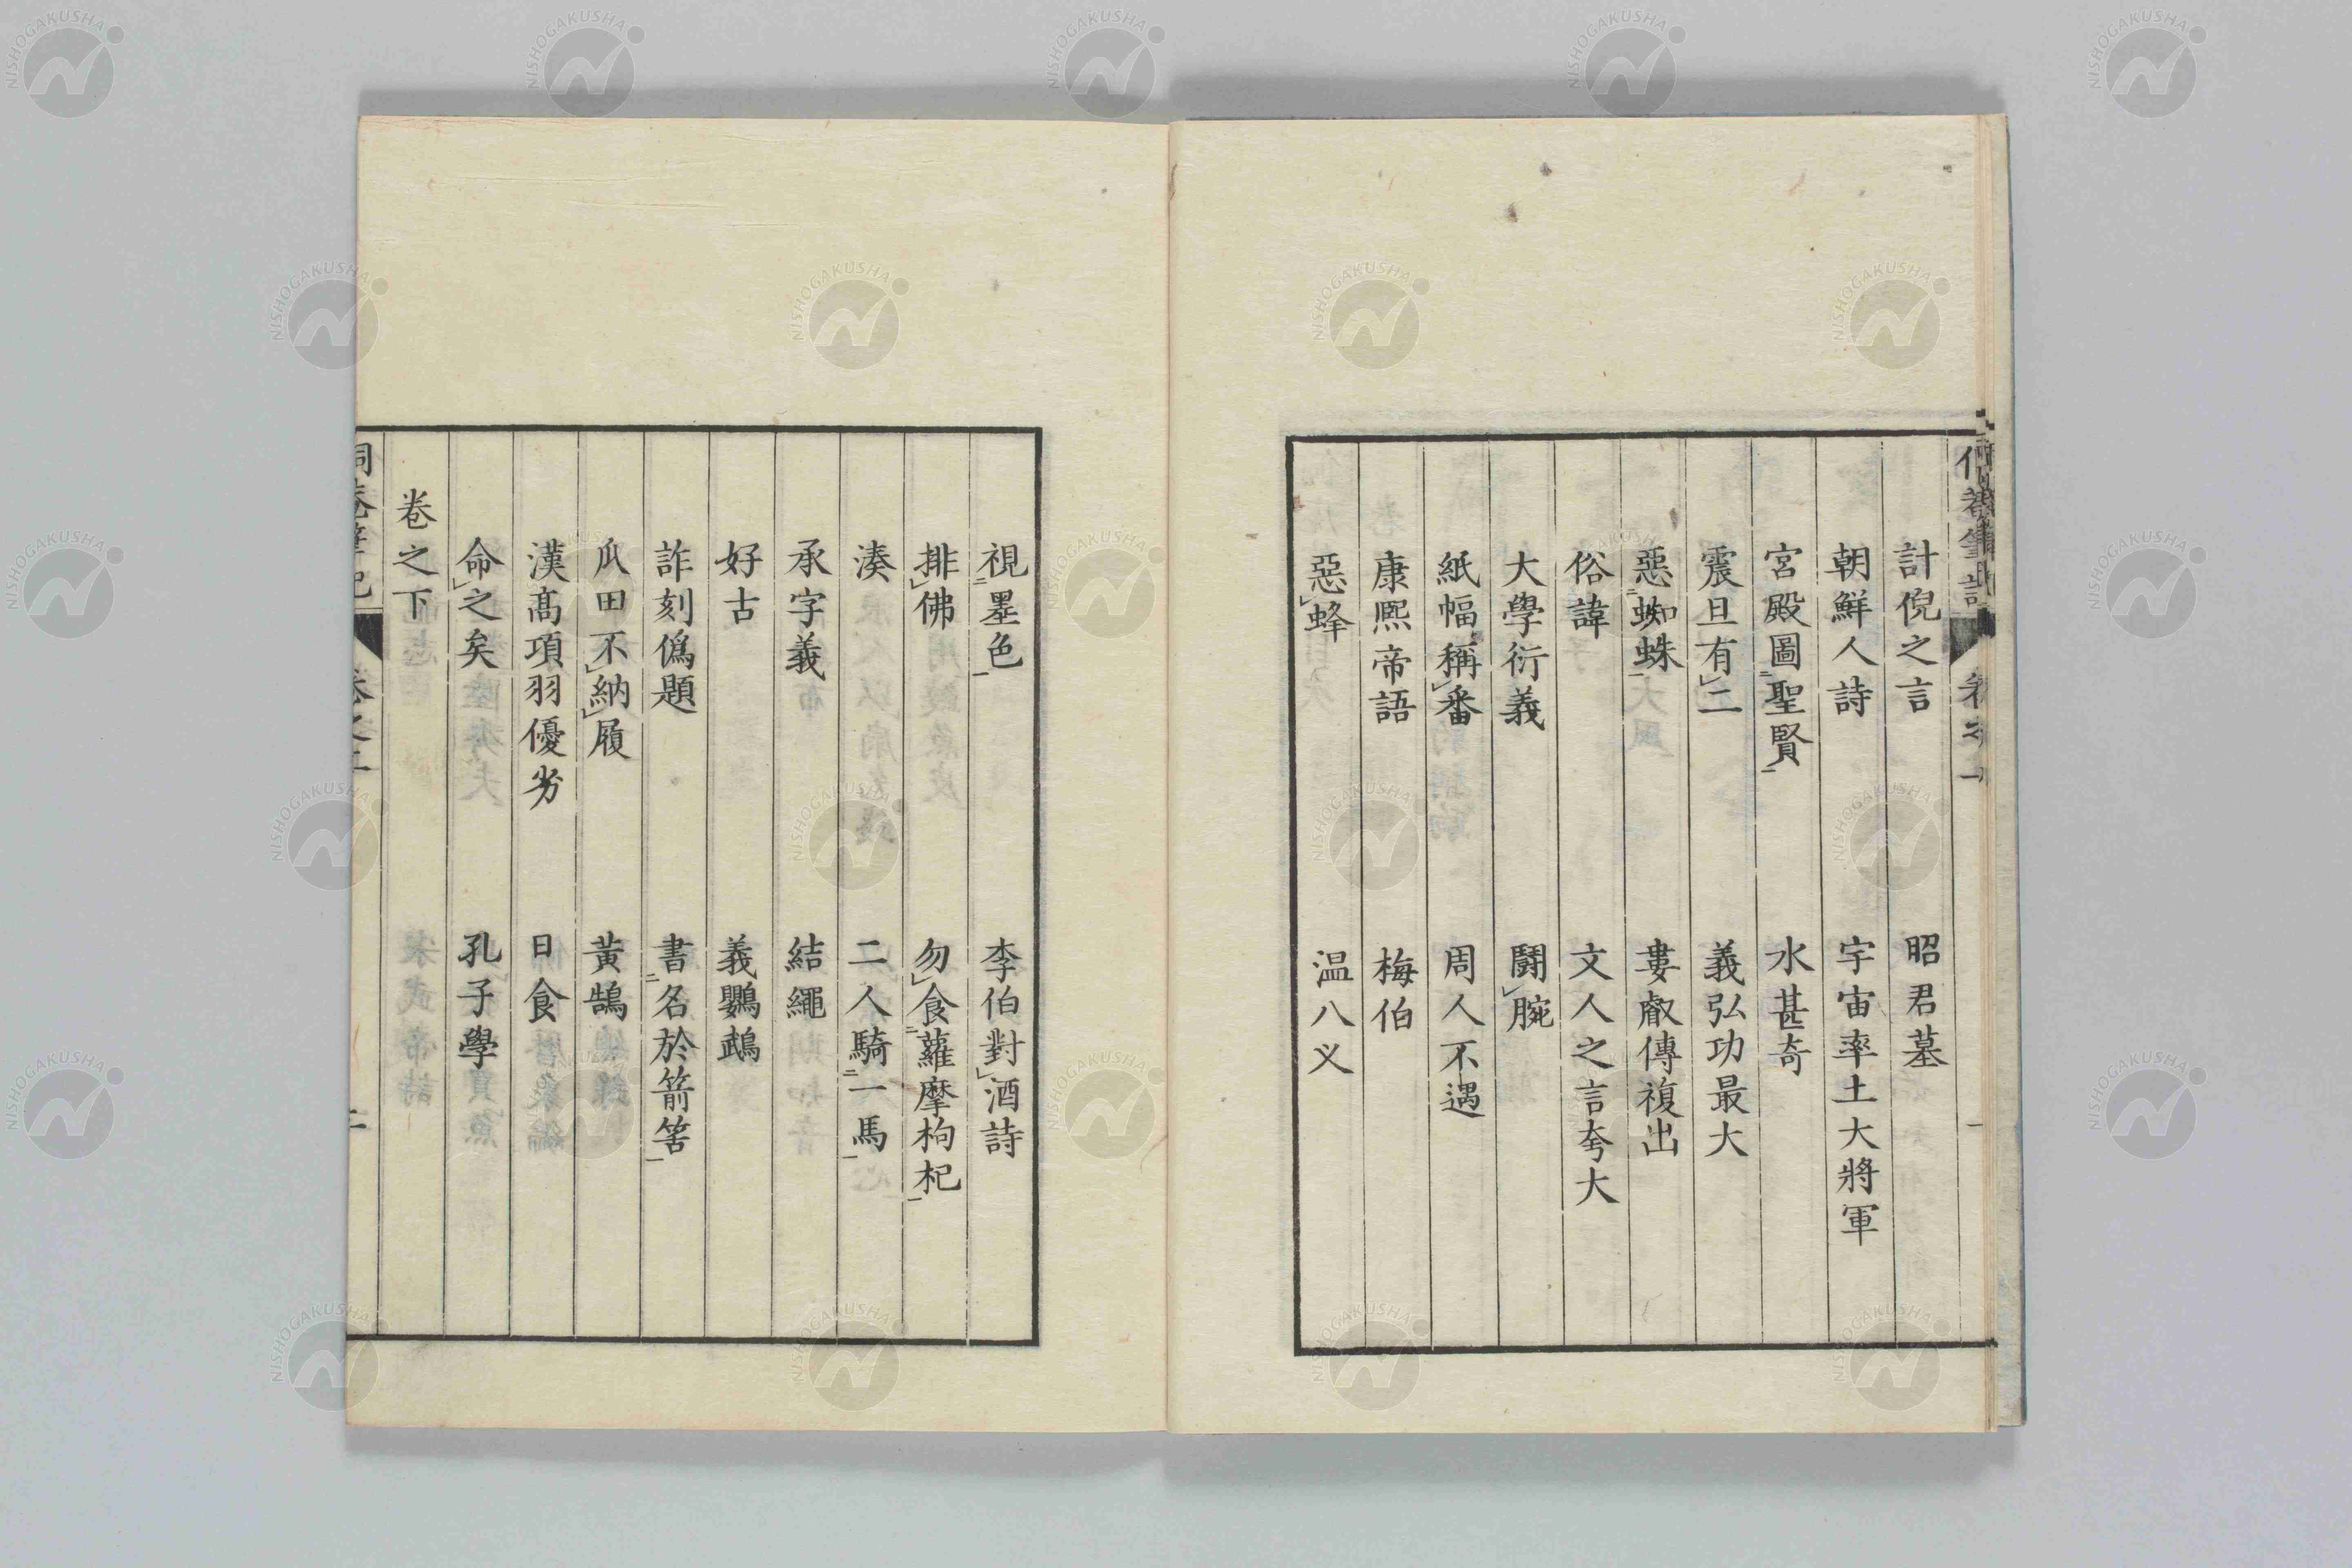 計倪之言 昭君墓
朝鮮人詩 宇宙率土大將軍
宮殿圖㆓聖賢㆒ 水甚奇
震旦有㆑二 義弘功最大
惡㆓蜘蛛㆒ 婁叡傳複出
俗諱 文人之言夸大
大學衍義 鬪㆑腕
紙幅稱㆑番 周人不遇
康熙帝語 梅伯
惡㆑蜂 温八义
視㆓墨色㆒ 李伯對㆑酒詩
排㆑佛 勿㆑食㆓蘿摩枸杞㆒
湊 二人騎㆓一馬㆒
承字義 結繩
好古 義鸚鵡
詐刻僞題 書㆓名於箭筈㆒
瓜田不㆑納㆑履 黃鵠
漢髙項羽優劣 日食
命㆑之矣 孔子學
卷之下
NISHOGAKUSHA